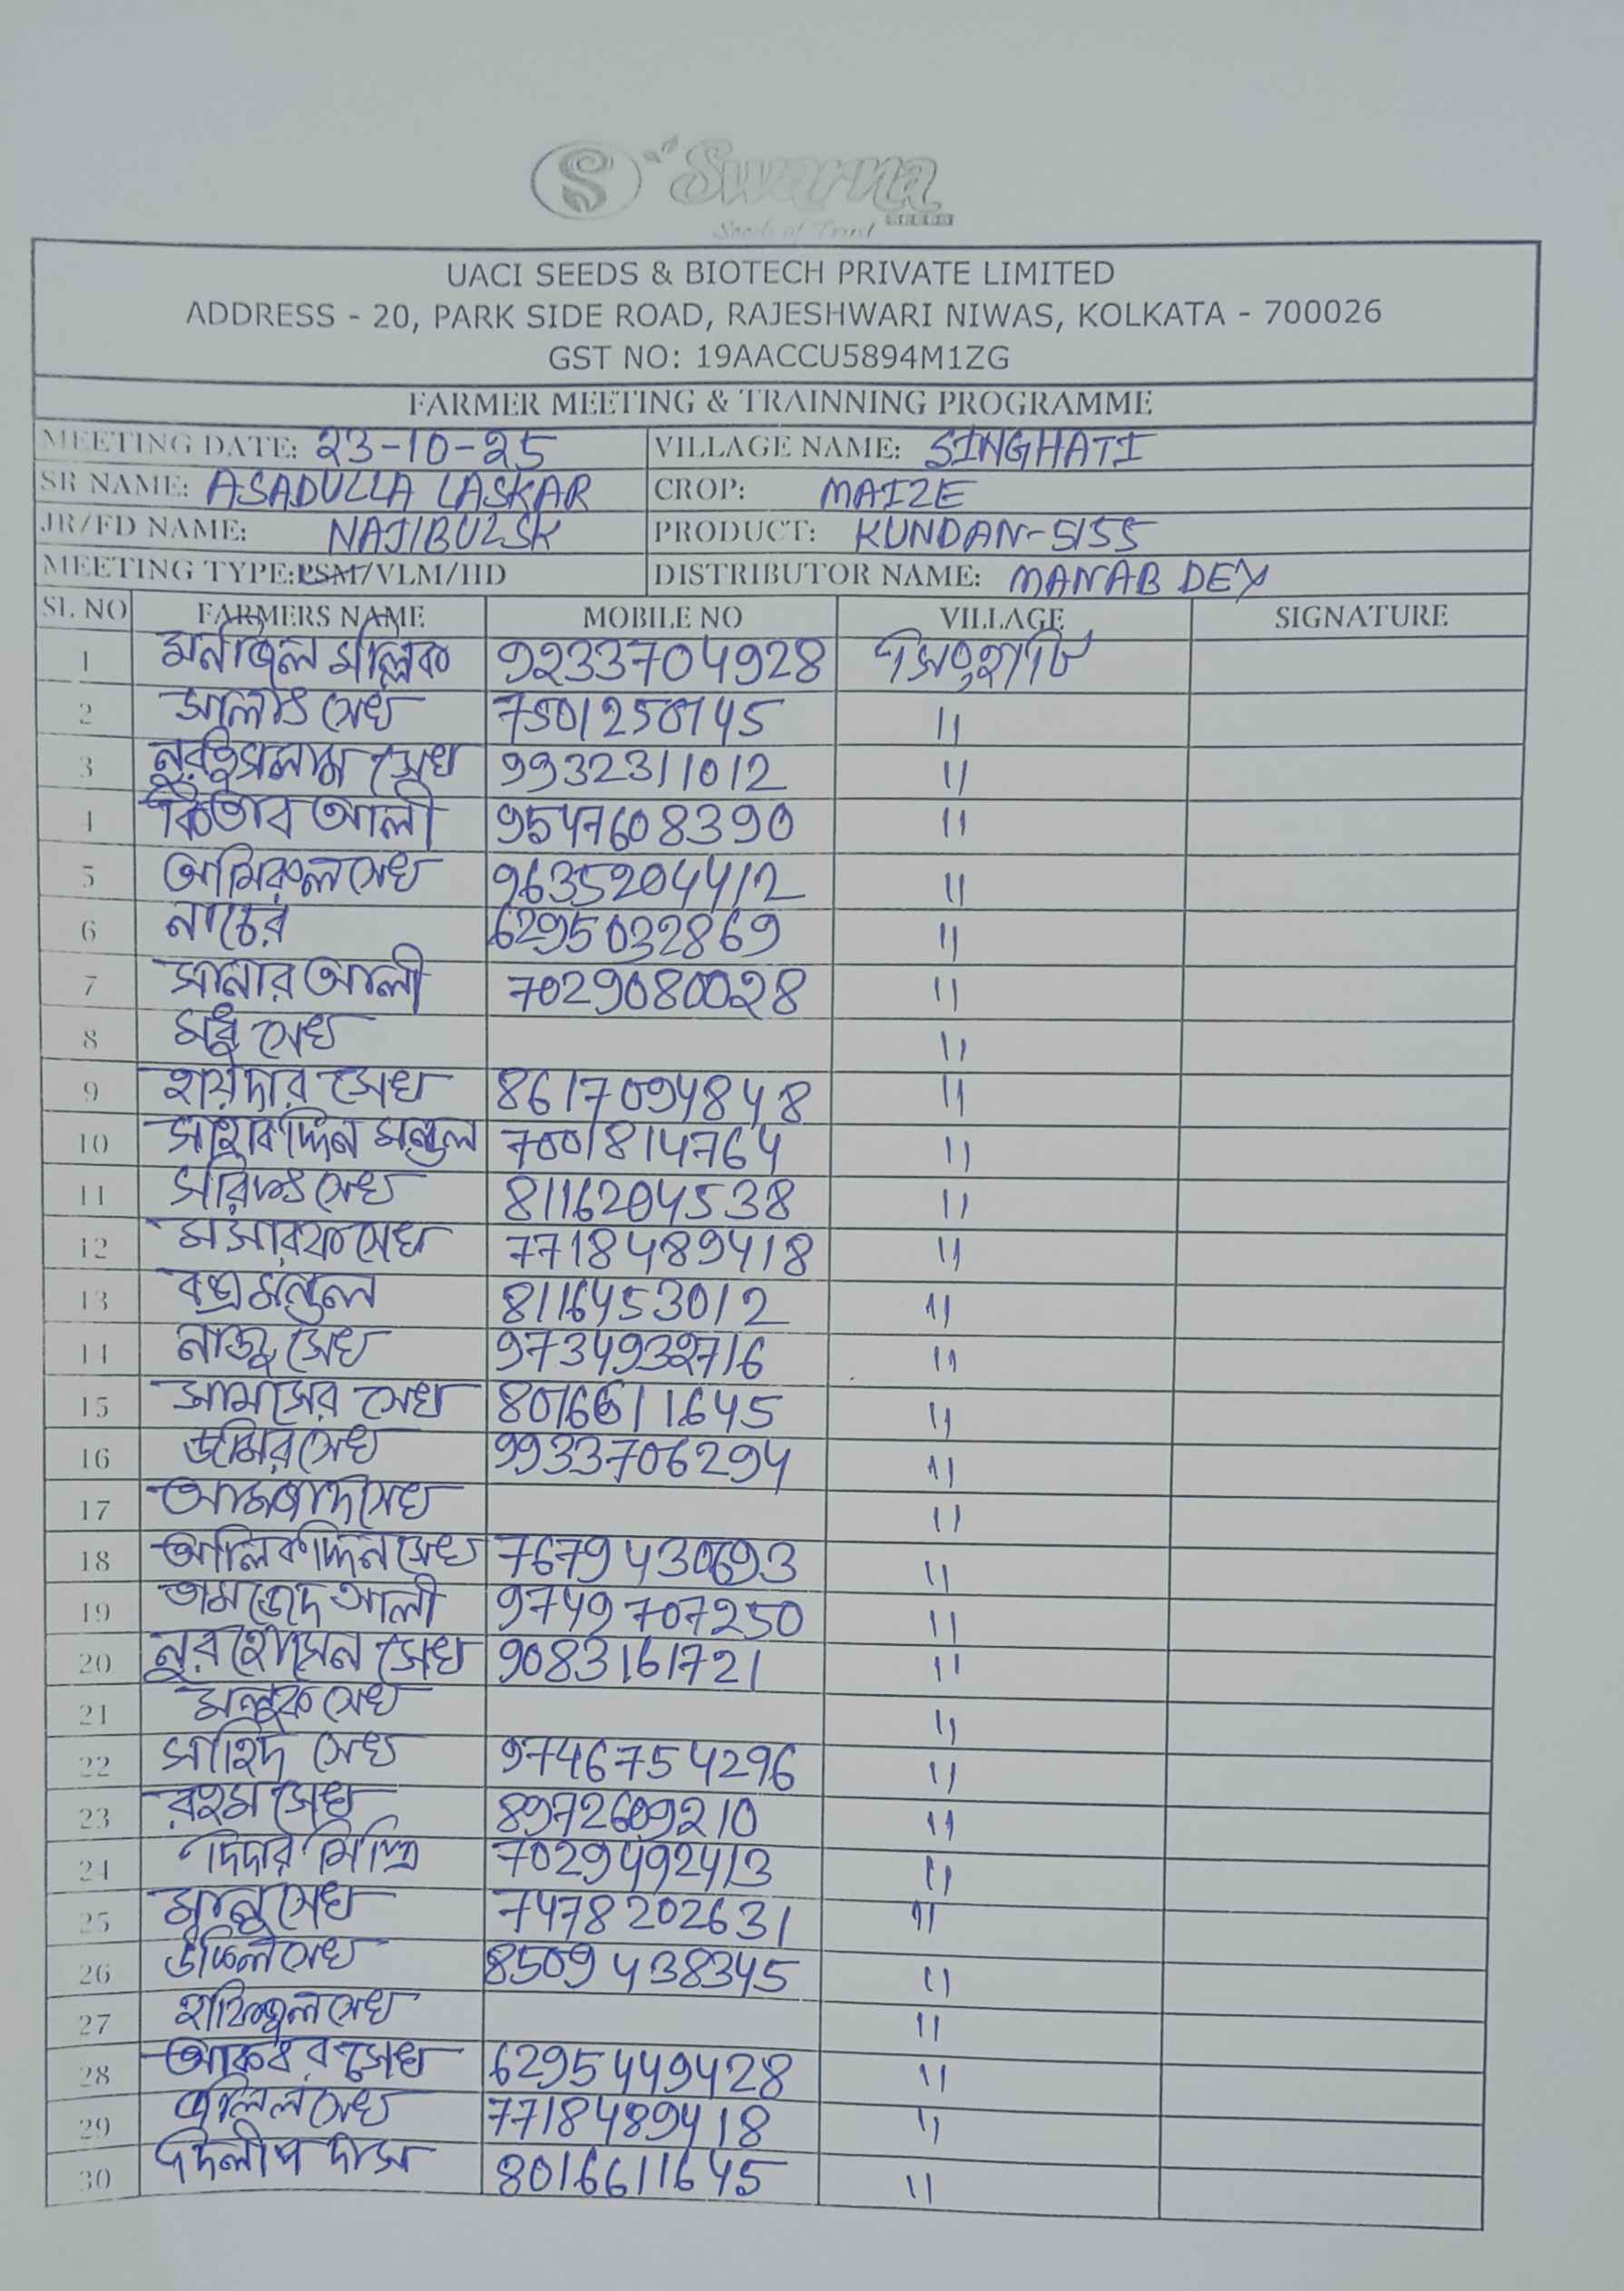 Swarna
SEEDS
Seeds of Trust
UACI SEEDS & BIOTECH PRIVATE LIMITED
ADDRESS - 20, PARK SIDE ROAD, RAJESHWARI NIWAS, KOLKATA - 700026
GST NO: 19AACCU5894M1ZG
FARMER MEETING & TRAINNING PROGRAMME
MEETING DATE: 23-10-25 VILLAGE NAME: SINGHATI
SR NAME: ASADULLA LASKAR CROP: MAIZE
JR/FD NAME: NAJIBULSK PRODUCT: KUNDAN-5155
MEETING TYPE: PSM/VLM/HD DISTRIBUTOR NAME: MANAB DEY
SL NO FARMERS NAME MOBILE NO VILLAGE SIGNATURE
1 মনজিল মল্লিক 9233704928 সিংহাটি
2 সেখ 7501250745 11
3 নুরইসলাম সেখ 9932311012 11
4 কিতাব আলী 9547608390 11
5 আমিরুল সেখ 9635204412 11
6 নাচের 6295032869 11
7 সানার আলী 7029080028 11
8 মধু সেখ 11
9 হায়দার সেখ 8617094848 11
10 সাহাবদ্দিন মন্ডল 7001814764 11
11 সেখ 8116204538 11
12 সেখ 7718489418 11
13 মন্ডল 8116453012 11
14 নাজু সেখ 9734932716 11
15 সামসের সেখ 8016611645 11
16 জামির সেখ 9933706294 11
17 সেখ 11
18 আলিমদ্দিন সেখ 7679430693 11
19 আমজেদ আলী 9749707250 11
20 নুর হোসেন সেখ 9083161721 11
21 সেখ 11
22 সাহিদ সেখ 9746754296 11
23 রহম সেখ 8972609210 11
24 দিদার মিস্ত্রি 7029492413 11
25 সেখ 7478202631 11
26 সেখ 8509438345 11
27 সেখ 11
28 আকবর সেখ 6295449428 11
29 জলিল সেখ 7718489418 11
30 দিলীপ দাস 8016611645 11